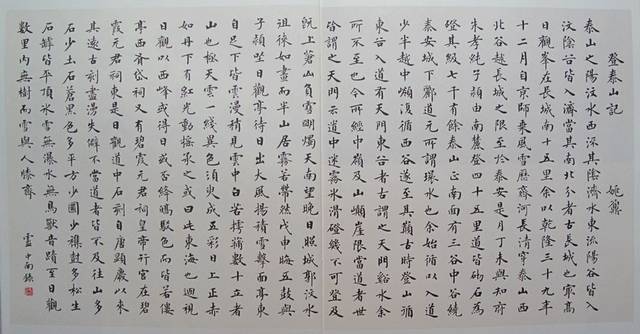 登泰山記 姚鼐
泰山之陽汶水西流其陰濟水東流陽谷皆入
汶陰谷皆入濟當其南北分者古長城也最高
日觀峯在長城南十五里余以乾隆三十九年
十二月自京師乘風雪歷齊河長清穿泰山西
北谷越長城之限至於泰安是月丁未與知府
朱孝純子潁由南麓登四十五里道皆砌石為
磴其級七千有餘泰山正南面有三谷中谷繞
泰安城下酈道元所謂環水也余始循以入道
少半越中嶺復循西谷遂至其巔古時登山循
東谷入道有天門東谷者古謂之天門谿水余
所不至也今所經中嶺及山巔崖限當道者世
皆謂之天門云道中迷霧冰滑磴幾不可登及
既上蒼山負雪明燭天南望晚日照城郭汶水
徂徠如畫而半山居霧若帶然戊申晦五鼓與
子潁坐日觀亭待日出大風揚積雪擊面亭東
自足下皆雲漫稍見雲中白若摴蒱數十立者
山也極天雲一綫異色須臾成五彩日上正赤
如丹下有紅光動搖承之或曰此東海也迴視
日觀以西峰或得日或否絳皓駁色而皆若僂
亭西有岱祠又有碧霞元君祠皇帝行宮在碧
霞元君祠東是日觀道中石刻自唐顯慶以來
其遠古刻盡漫失僻不當道者皆不及往山多
石少土石蒼黑色多平方少圜少雜樹多松生
石罅皆平頂冰雪無瀑水無鳥獸音蹟至日觀
數里內無樹而雪與人膝齊
盧中南錄